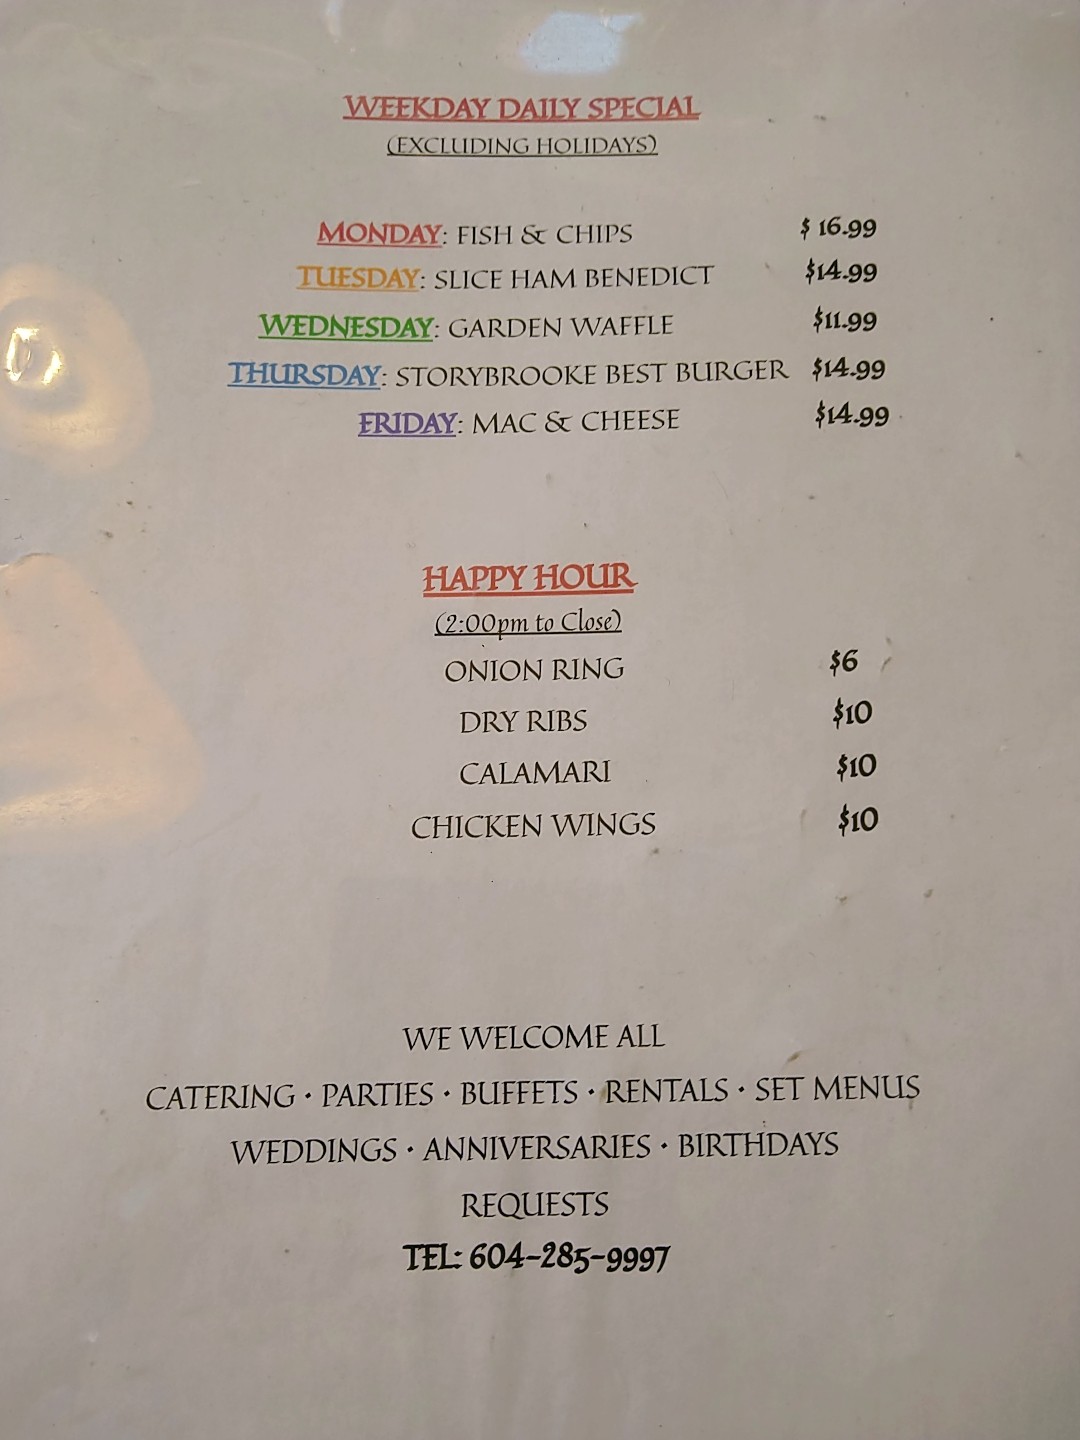 WEEKDAY DAILY SPECIAL
(EXCLUDING HOLIDAYS)
MONDAY: FISH & CHIPS $ 16.99
TUESDAY: SLICE HAM BENEDICT $14.99
WEDNESDAY: GARDEN WAFFLE $11.99
THURSDAY: STORYBROOKE BEST BURGER $14.99
FRIDAY: MAC & CHEESE $14.99
HAPPY HOUR
(2:00pm to Close)
ONION RING $6
DRY RIBS $10
CALAMARI $10
CHICKEN WINGS $10
WE WELCOME ALL
CATERING • PARTIES • BUFFETS • RENTALS • SET MENUS
WEDDINGS • ANNIVERSARIES • BIRTHDAYS
REQUESTS
TEL: 604-285-9997